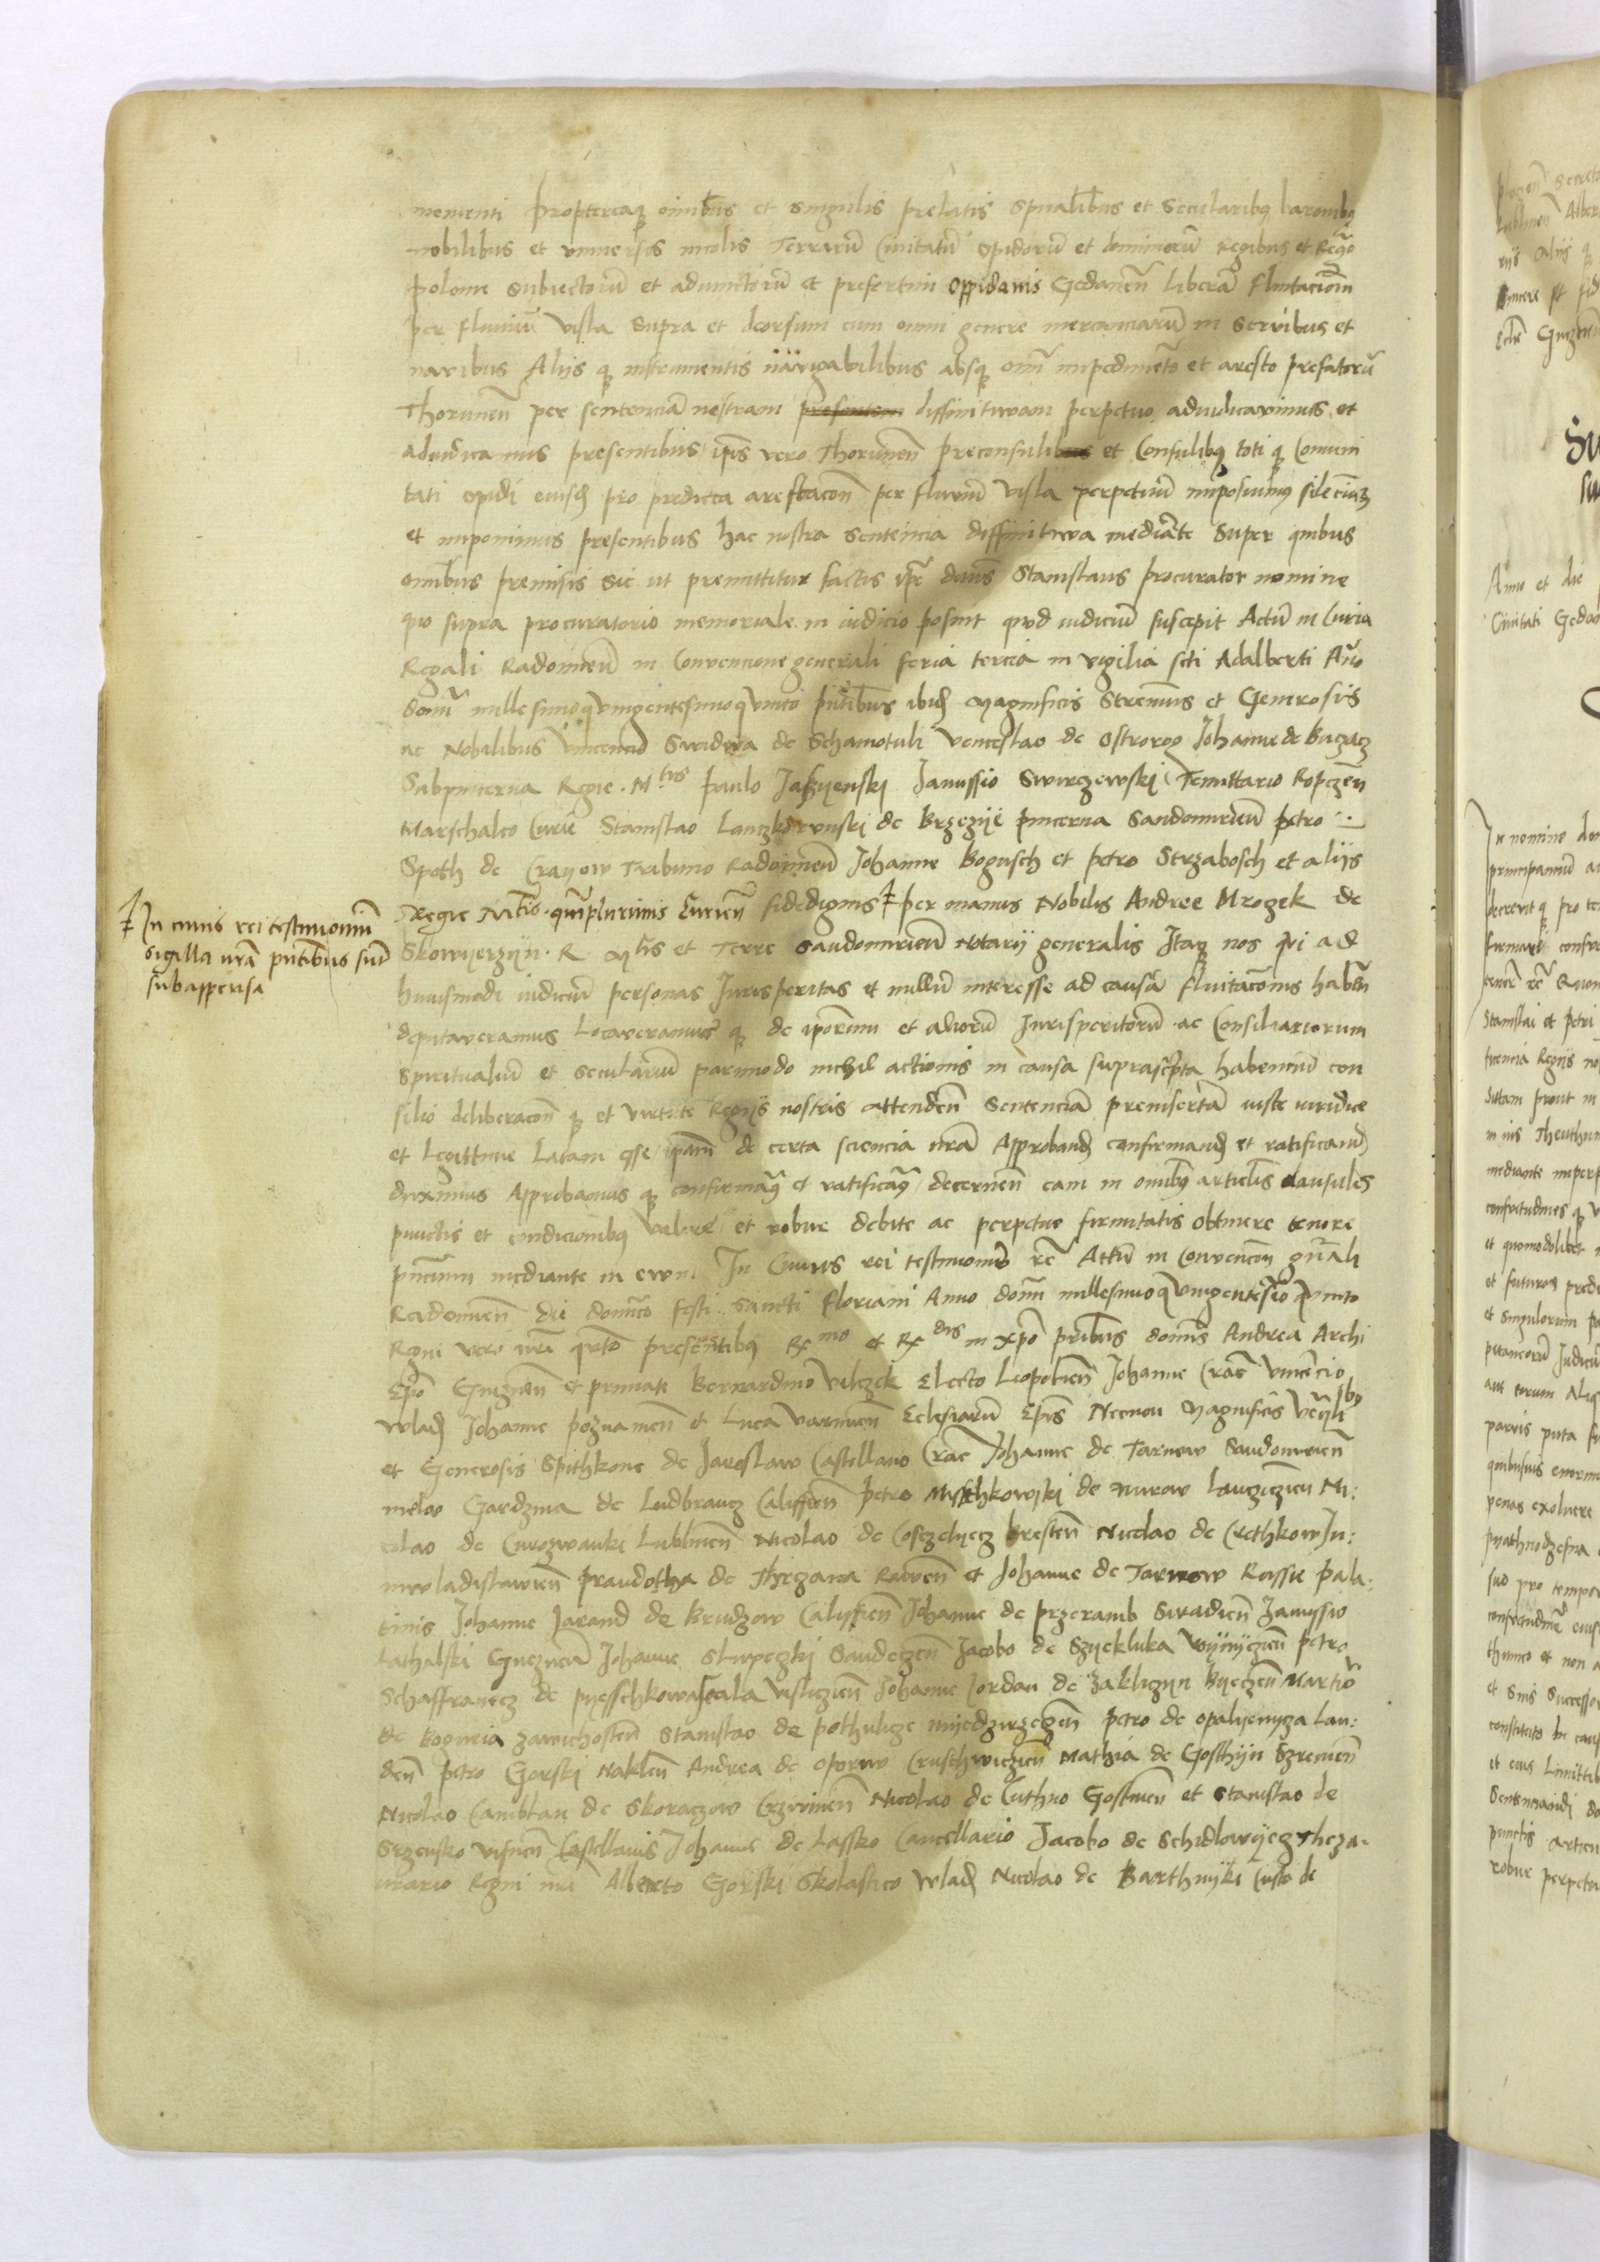 nementi proptereaq omibus et singulis prelatis spualibus et secularibus baronibus
nobilibus et universis incolis Terrarū Civitatū opidorū et dominorū Regibus et Regno
Polonie subiectorū et adiunctorū et presertim oppidanis Gedaneñ liberā fluitacionem
per fluviū visla supra et deorsum cum omni genere mercanciarū in serribus et
navibus Alijs q instrumentis navigabilibus absq omni impedimeto et aresto prefatorū
Thoruneñ per sentenciā nostram presentem diffinitivam perpetuo adiudicavimus et
adiudicamus presentibus ipis vero Thoruneñ preconsulibus et Consulibus toti q Comuni
tati opidi eiusd pro predicta arestacoñ per fluviū visla perpetuū imposuimus silecium
et imponimus presentibus hac nostra sentencia diffinitiva mediate Super quibus
omibus premisis sic ut premittitur factis ipe dnus Stanislaus procurator nomine
quo supra procuratorio memoriale in iudicio posuit quod iudiciū suscepit Actū in Curia
Regali Radomieñ in Convencione generali feria tercia in vigilia scti Adalberti Año
domi millesimoquingentesimoquinto pntibus ibid Magnificis Strenuis et Generosis
ac Nobilibus Vincencio Swidwa de Schamotuli venceslao de ostrorog Johanne de Buczacz
Subpincerna Regie Mtis Paulo Jassyenski Janussio Swirczewski Tenuttario Ropczeñ
Marschalco Curie Stanislao Lanczkorunski de Brzezije pincerna Sandomirieñ petro
Spoth de Crayow Tribuno Radomieñ Johanne Bogusch et petro Strzabosch et alijs
Regie Mtis qmplurimis Curieñ fidedignis ‡ per manus Nobilis Andree Mrozek de
‡ In cuius rei testimoniū
sigilla nrā pntibus sunt
subappensa
Skowyerzijn R Mtis et Terre Sandomirieñ Notarij generalis Itaq nos qui ad
huiusmodi iudiciū personas Jurisperitas et nullū interesse ad causā fluitacōnis habeñ
deputaveramus Locaveramus q de iporum et aliorū Jurisperitorū ac Consiliariorum
Spiritualiū et seculariū parimodo nichil actionis in causa suprascpta habenciū con
silio deliberacoñ q et virtute Regijs nostris attendeñ Sentenciā preinsertā iuste iuridice
et Legittime Latam esse ipam de certa sciencia nrā Approband confirmand et ratificand
duximus Approbamus q confirmamus et ratificamus decerneñ eam in omibus articulis clausulis
punctis et condicionibus valere et robur debite ac perpetue firmitatis obtinere tenore
pncium mediante in evum In Cuius rei testimoniū re Actū in Convencoñ gnali
Radomieñ die domico festi sancti Floriani Anno domi millesimoquingentesimoquinto
Regni vero nri qrto presentibus Rmo et Rdis in xpo pribus domis Andrea Archi
Epō Gnezneñ et primate Bernardino vilczek Electo Leopolieñ Johanne Crac Vincencio
Wlad Johanne poznanieñ et Luca varmieñ Eclesiarū Epis Necnon Magnificis Venlibus
et Generosis Spithkone de Jaroslaw Castellano Crac Johanne de Tarnow Sandomirieñ
melao Gardzina de Ludbrancz Calissieñ petro Myschkowski de mirow Lancziczieñ Ni:
colao de Curozwanki Lublineñ Nicolao de Cosczelyecz bresteñ Nicolao de Crethkow Ju:
nivladislawieñ Prandotha de Threzana Raweñ et Johanne de Tarnow Russie Pala:
tinis Johanne Jarand de Brudzow Calissieñ Johanne de przeramb Siradieñ Janussio
Lathalski Gnezneñ Johanne Slupeczki Sandeczeñ Jacobo de Szijekluka Woijniczieñ petro
Schaffranecz de pyesschkowascala visliczieñ Johanne Jordan de Zakliczijn Byeczeñ Martino
de Boguria Zawichosteñ Stanislao de pothulicze mijedzirzeczeñ petro de opalyenycza Lan:
deñ petro Gorski Nakleñ Andrea de oporow Cruschwiczieñ Mathia de Gosthijn Szremeñ
Nicolao Camblan de Skoraczow Crzivineñ Nicolao de Cuthno Gostineñ et Stanislao de
Srzensko visneñ Castellanis Johanne de Lassko Cancellario Jacobo de Schidlowijecz Theza
urario Regni nri Alberto Gorski Skolastico Wlad Nicolao de Barthnijki Custode